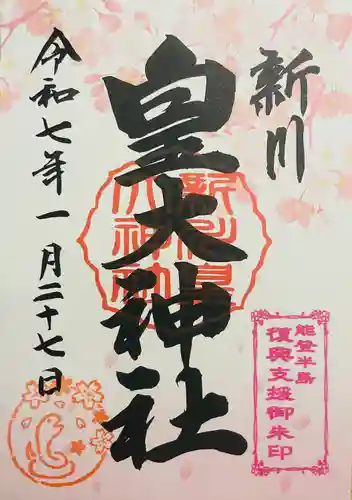 新川
皇大神社
令和七年一月二十七日
能登半島
復興支援御朱印